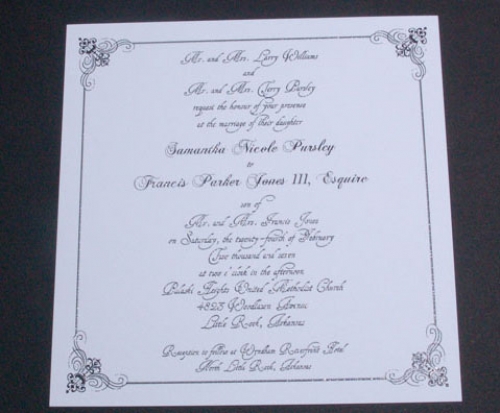 Mr. and Mrs. Larry Williams
and
Mr. and Mrs. Jerry Pursley
request the honour of your presence
at the marriage of their daughter
Samantha Nicole Pursley
to
Francis Parker Jones III, Esquire
son of
Mr. and Mrs. Francis Jones
on Saturday, the twenty-fourth of February
Two thousand and seven
at two o'clock in the afternoon
Pulaski Heights United Methodist Church
4823 Woodlawn Avenue
Little Rock, Arkansas
Reception to follow at Wyndham Riverfront Hotel
North Little Rock, Arkansas